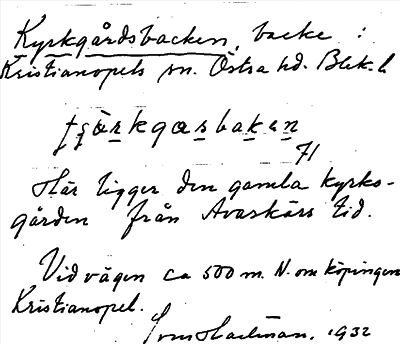 Kyrkgårdsbacken, backe :
Kristianopels sn. Östra hd. Blek. l
71
Här ligger den gamla kyrko-
gården från Avaskärs tid.
Vid vägen ca 500 m. N. om köpingen
Kristianopel.
1932